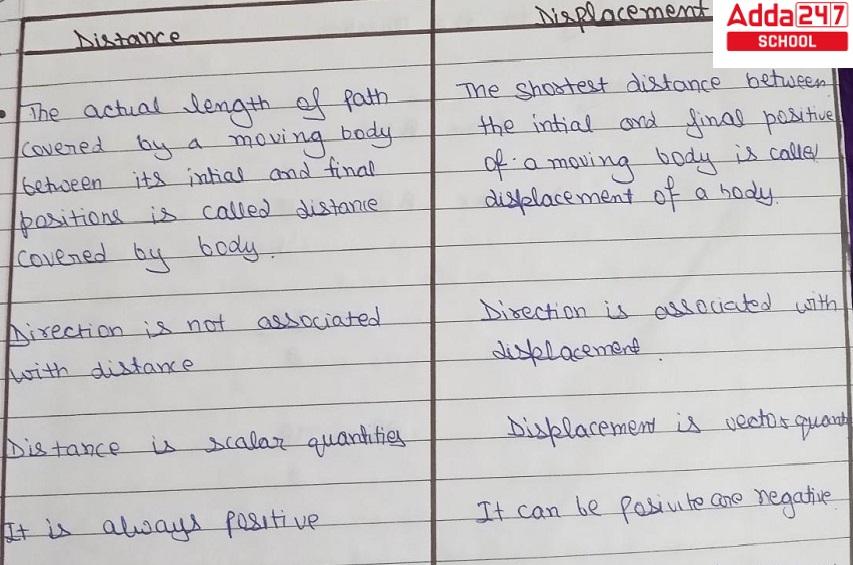 Distance
The actual length of path
covered by a moving body
between its intial and final
positions is called distance
covered by body.
Direction is not associated
with distance
Distance is scalar quantities
It is always positive
Displacement
The shortest distance between
the intial and final positive
of a moving body is called
displacement of a body.
Direction is associated with
displacement.
Displacement is vector quant
It can be posivite are negative
Adda247
SCHOOL